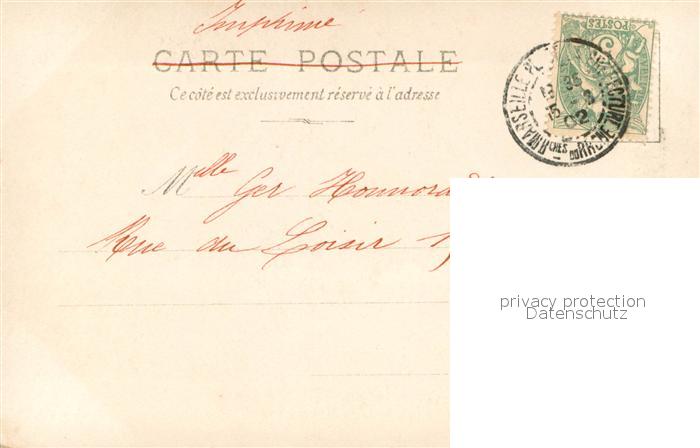 Imprimé
CARTE POSTALE
Ce côté est exclusivement réservé à l'adresse
POSTES
MARSEILLE
DU RHONE
Mlle Ger Honnora
Rue du Loisir 1
privacy protection
Datenschutz